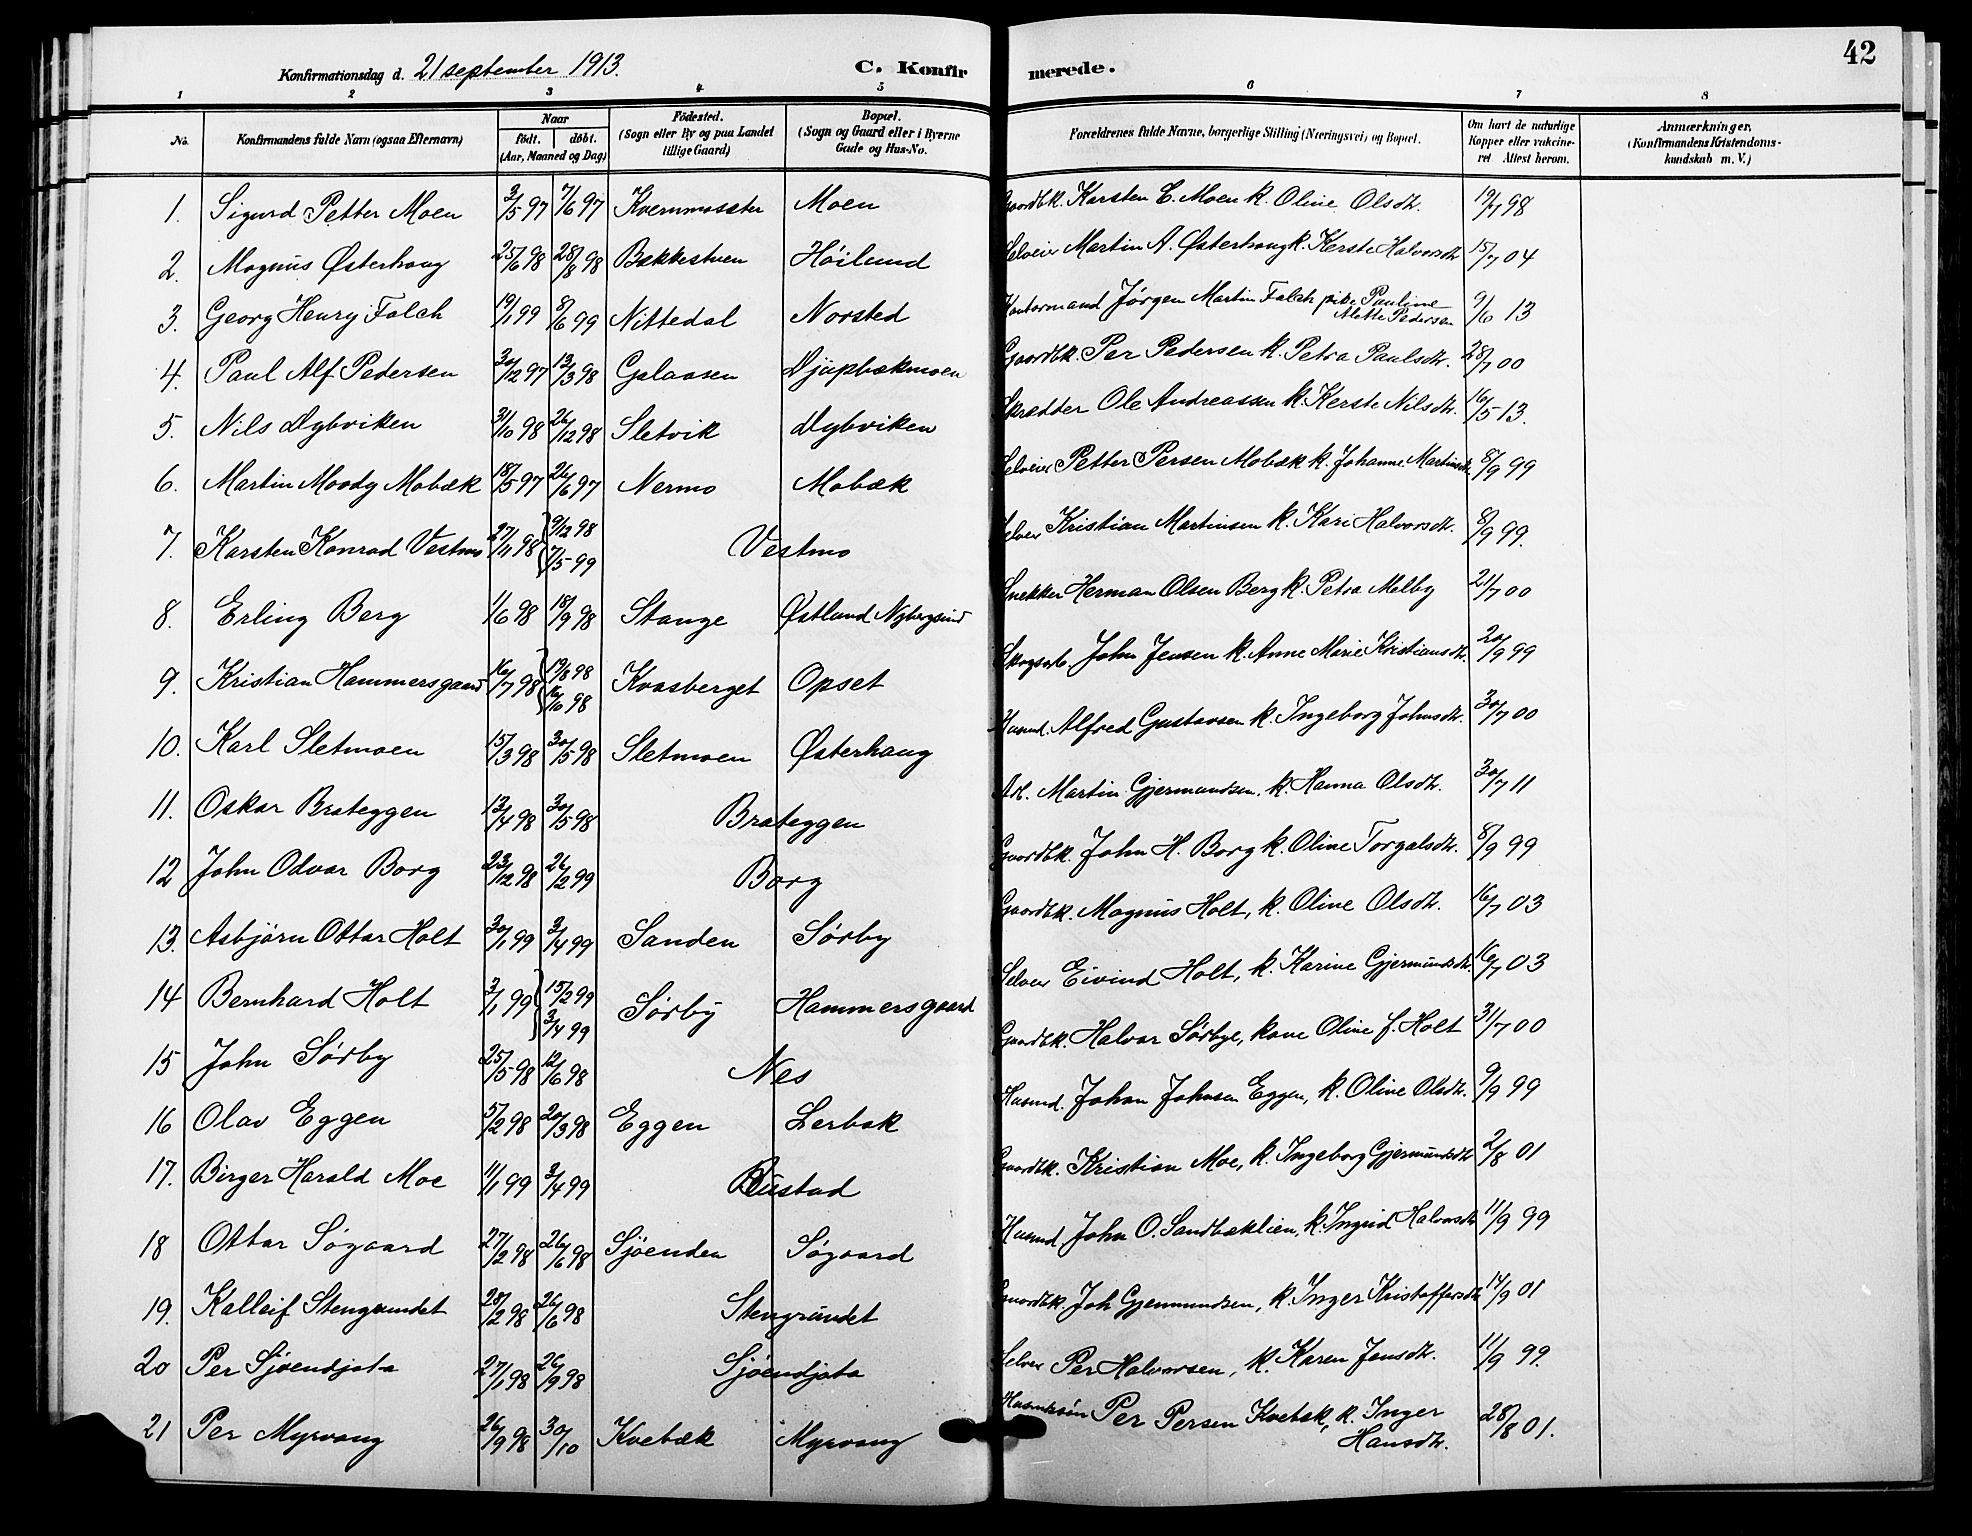 Konfirmationsdag d. 21 september 1913. C. Konfir merede. 42
1 2 3 4 5 6 7 8
No. Konfirmandens fulde Navn (ogsaa Efternavn) Naar födt. döbt. (Aar, Maaned og Dag) Födested. (Sogn eller By og paa Landet tillige Gaard) Bopæl. (Sogn og Gaard eller i Byerne Gade og Hus-No. Forældrenes fulde Navne, borgerlige Stilling (Næringsvei) og Bopæl. Om havt de naturlige Kopper eller vakcineret Attest herom. Anmærkninger. (Konfirmandens Kristendomskundskab m. V.)
1. Sigurd Petter Moen 3/5 97 7/6 97 Kvernmosæter Moen Gaardbk. Karsten E. Moen k. Oline Olsdtr. 19/7 98
2. Magnus Østerhaug 25/6 98 28/8 98 Bækkestuen Höilund Selveier Martin A. Østerhaug k. Kerste Halvorsdtr 15/7 04
3. Georg Henry Falch 19/1 99 8/6 99 Nittedal Norsted Kontormand Jörgen Martin Falch pike Pauline Alette Pedersen 9/6 13
4. Paul Alf Pedersen 30/12 97 13/3 98 Galaasen Djupbækmoen Gaardbk Per Pedersen k. Petra Paulsdtr. 28/7 00
5. Nils Dybviken 31/10 98 26/12 98 Sletvik Dybviken Skrædder Ole Andreassen k. Kerste Nilsdtr. 16/5 13.
6. Martin Moody Mobæk 18/5 97 26/6 97 Nermo Mobæk Selveier Petter Persen Mobæk k. Johanne Martinsdtr 8/9 99
7. Karsten Konrad Vestmo 27/11 98 9/12 98 7/5 99 Vestmo Selveier Kristian Martinsen k. Kari Halvorsdtr. 8/9 99.
8. Erling Berg 1/6 98 18/9 98 Stange Østlund Nybergsund Snekker Herman Olsen Berg k. Petra Melby 21/7 00
9. Kristian Hammersgaard 16/7 98 19/8 98 16/10 98 Kvasberget Opset Skogsarb. John Jensen k. Anne Marie Kristiansdtr. 20/9 99
10. Karl Sletmoen 15/3 98 30/5 98 Sletmoen Østerhaug Husmd. Alfred Gustavsen k. Ingeborg Johnsdtr. 30/7 00
11. Oskar Brateggen 13/4 98 30/5 98 Brateggen Arb. Martin Gjermundsen. k. Hanna Olsdtr. 30/7 11
12 John Odvar Borg 23/12 98 26/2 99 Borg Gaardbk. John H. Borg k. Oline Torgalsdtr. 8/9 99
13. Asbjörn Ottar Holt 30/1 99 3/4 99 Sanden Sörby Gaardbk. Magnus Holt, k. Oline Olsdtr. 16/7 03
14 Bernhard Holt 3/1 99 15/2 99 3/4 99 Sörby Hammersgaard Selveier Eivind Holt, k. Karine Gjermundsdtr. 16/7 03
15 John Sörby 25/5 98 12/6 98 Nes Gaardbk. Halvor Sörbye, kone Oline f. Holt 31/7 00
16 Olav Eggen 5/2 98 20/3 98 Eggen Lerbæk Husmd. Johan Johnsen Eggen, k. Oline Olsdtr. 9/9 99
17. Birger Harald Moe 11/1 99 3/4 99 Rustad Gaardbk. Kristian Moe, k. Ingeborg Gjermundsdtr 2/8 01
18 Ottar Sögaard 27/2 98 26/6 98 Sjöenden Sögaard Husmd. John O. Sandbæklien, k. Ingrid Halvorsdtr 11/9 99
19. Kalleif Stengrundet 28/2 98 26/6 98 Stengrundet Gaardbk. Joh Gjermundsen, k. Inger Kristoffersdtr 14/9 01
20 Per Sjöendjota 27/1 98 26/9 98 Sjöendjota Selveier Per Halvorsen, k. Karen Jensdtr. 11/9 99.
21 Per Myrvang 26/9 98 30/10 Kvebæk Myrvang Per Persen Kvebæk, k. Inger Hansdtr. 28/8 01.